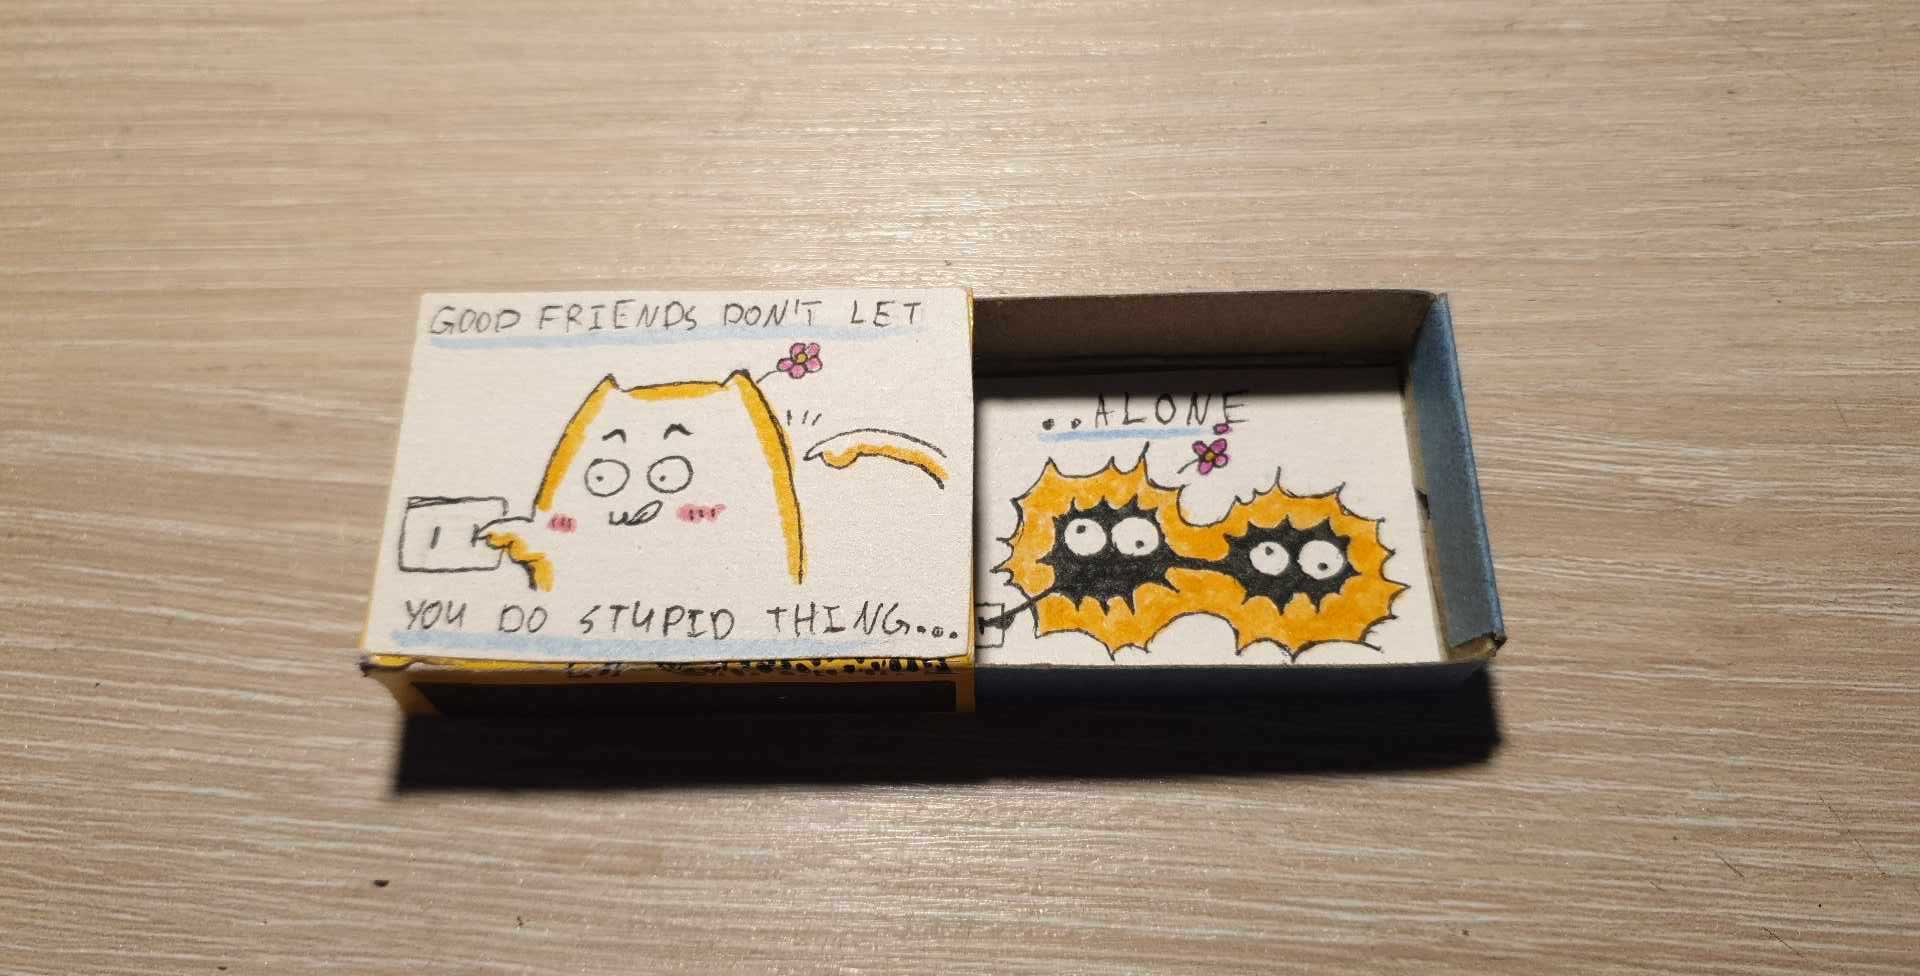 GOOD FRIENDS DON'T LET
YOU DO STUPID THING...
..ALONE